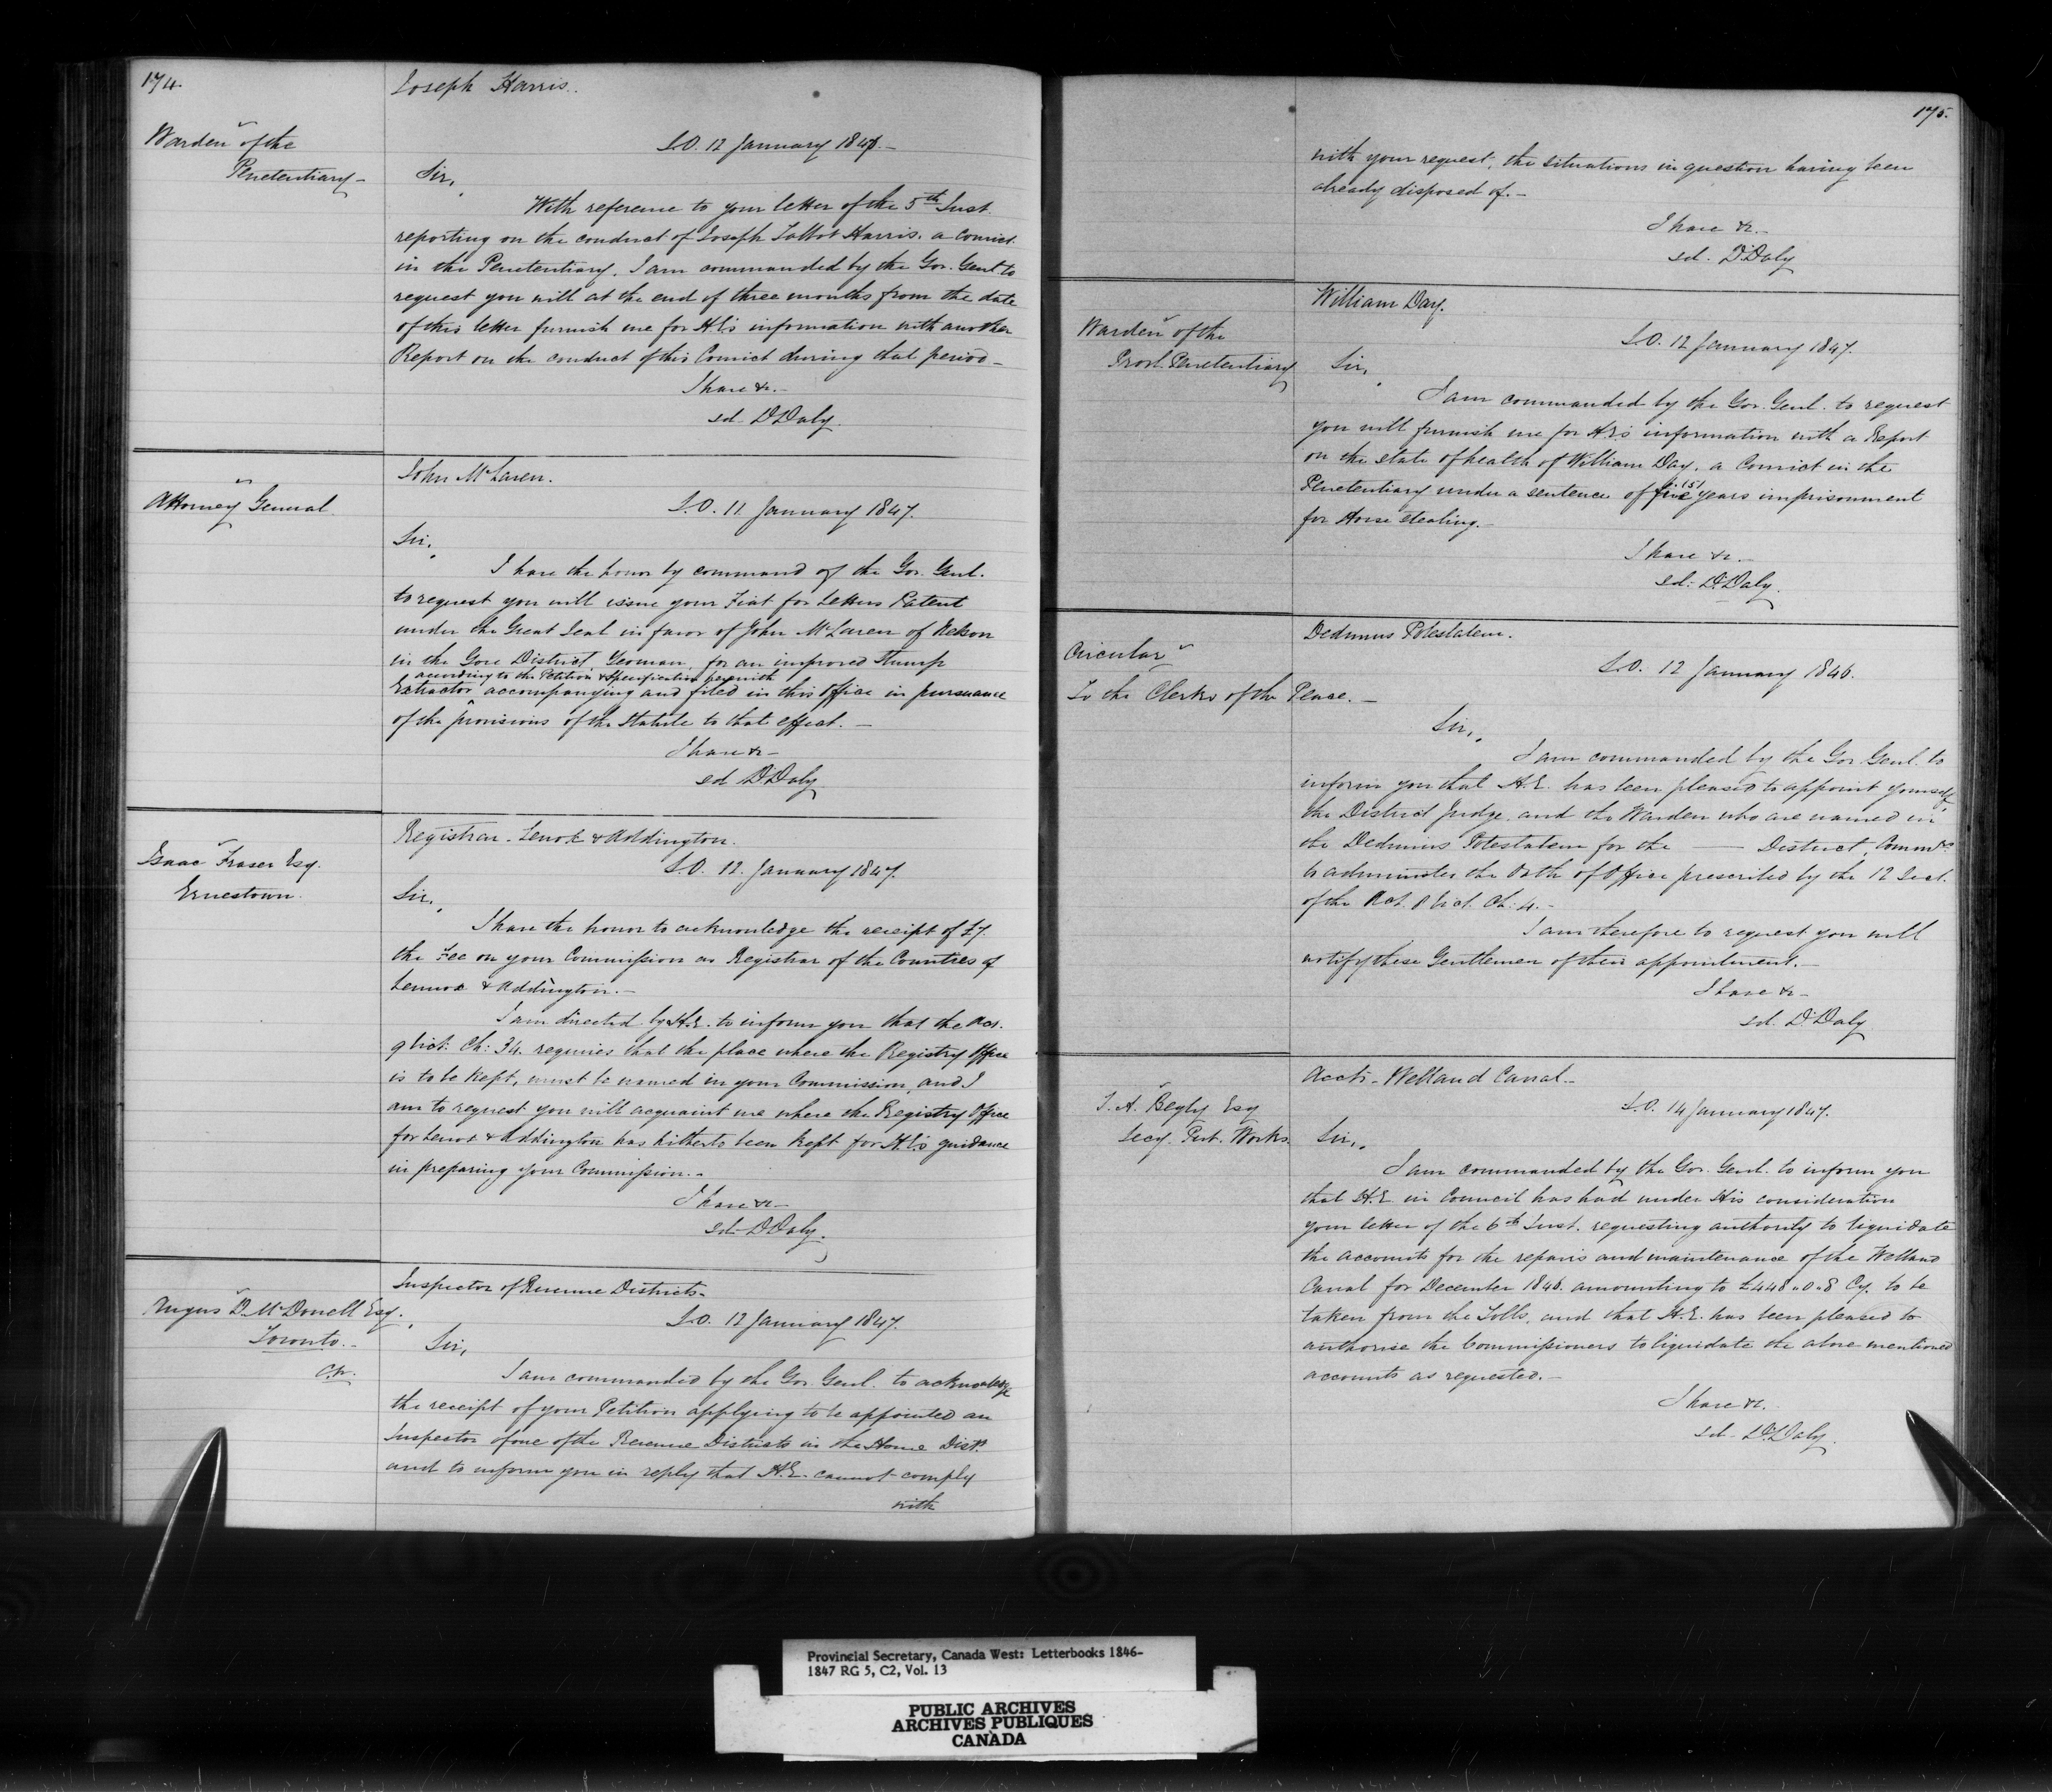 174.
Joseph Harris.
Warden of the
Penetentiary –
S.O. 12 January 1847. –
Sir,
With reference to your letter of the 5th Inst.
reporting on the conduct of Joseph Talbot Harris, a Convict
in the Penetentiary, I am commanded by the Gov. Genl to
request you will at the end of three months from the date
of this letter furnish me for H.E's information with another
Report on the conduct of this Convict during that period –
I have &c. –
sd. D Daly
John McLaren.
Attorney General
S.O. 11 January 1847.
Sir,
I have the honor by command of the Gov. Genl.
to request you will issue your Fiat for Letters Patent
under the Great Seal in favor of John McLaren of Nelson
in the Gore District, Yeoman, for an improved Stump
according to the Petition & Specification herewith
Extractor accompanying and filed in this Office in pursuance
of the provisions of the Statute to that effect. –
I have &c –
sd D Daly
Registrar – Lenox & Addington.
Isaac Fraser Esq.
Ernestown.
S.O. 12. January 1847.
Sir,
I have the honor to acknowledge the receipt of £7.
the Fee on your Commission as Registrar of the Counties of
Lennox & Addington. –
I am directed by H.E. to inform you that the Act.
9 Vict: Ch: 34. requires that the place where the Registry Office
is to be kept, must be named in your Commission, and I
am to request you will acquaint me where the Registry Office
for Lenox & Addington has hitherto been kept for H.E's guidance
in preparing your Commission. –
I have &c –
sd. D Daly.
Inspector of Revenue Districts –
Angus D. McDonell Esq.
Toronto. –
C.W.
S.O. 12 January 1847.
Sir,
I am commanded by the Gov. Genl. to acknowledge
the receipt of your Petition applying to be appointed an
Inspector of one of the Revenue Districts in the Home Dist.
and to inform you in reply that H.E. cannot comply
with
175.
with your request, the situations in question having been
already disposed of. –
I have &c. –
sd. D Daly
William Day.
Warden of the
Provl. Penetentiary
S.O. 12 January 1847.
Sir,
I am commanded by the Gov. Genl. to request
you will furnish me for H.E's information with a Report
on the state of health of William Day, a Convict in the
Penetentiary under a sentence of five (5) years imprisonment
for Horse stealing. –
I have &c. –
sd: D. Daly.
Dedimus Potestatem.
Circular
To the Clerks of the Peace. –
S.O. 12 January 1846.
Sir,
I am commanded by the Gov Genl. to
inform you that H.E. has been pleased to appoint yourself,
the District Judge, and the Warden who are named in
the Dedimus Potestatem for the —— District, Commrs
to administer the Oath of Office prescribed by the 12 Sect.
of the Act. 8 Vict. Ch: 4. –
I am therefore to request you will
notify these Gentlemen of their appointment. –
I have &c –
sd. D. Daly
Accts – Welland Canal –
T. A. Begly Esq
Secy. Pub. Works.
S.O. 14 January 1847.
Sir,
I am commanded by the Gov. Genl. to inform you
that H.E. in Council has had under His consideration
your letter of the 6th Inst. requesting authority to liquidate
the accounts for the repairs and maintenance of the Welland
Canal for December 1846. amounting to £448 " 0 " 8 Cy. to be
taken from the Tolls, and that H.E. has been pleased to
authorise the Commissioners to liquidate the above mentioned
accounts as requested. –
I have &c.
sd. D. Daly.
Provincial Secretary, Canada West: Letterbooks 1846–
1847 RG 5, C2, Vol. 13
PUBLIC ARCHIVES
ARCHIVES PUBLIQUES
CANADA